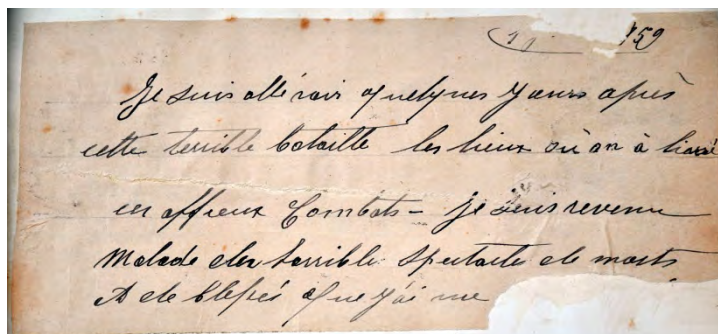 159
Je suis allé voir quelques Jours après
cette terrible bataille les lieux où on à livré
ces affreux Combats – Je suis revenu
Malade du terrible spectacle de morts
et de blessés que j'ai vue